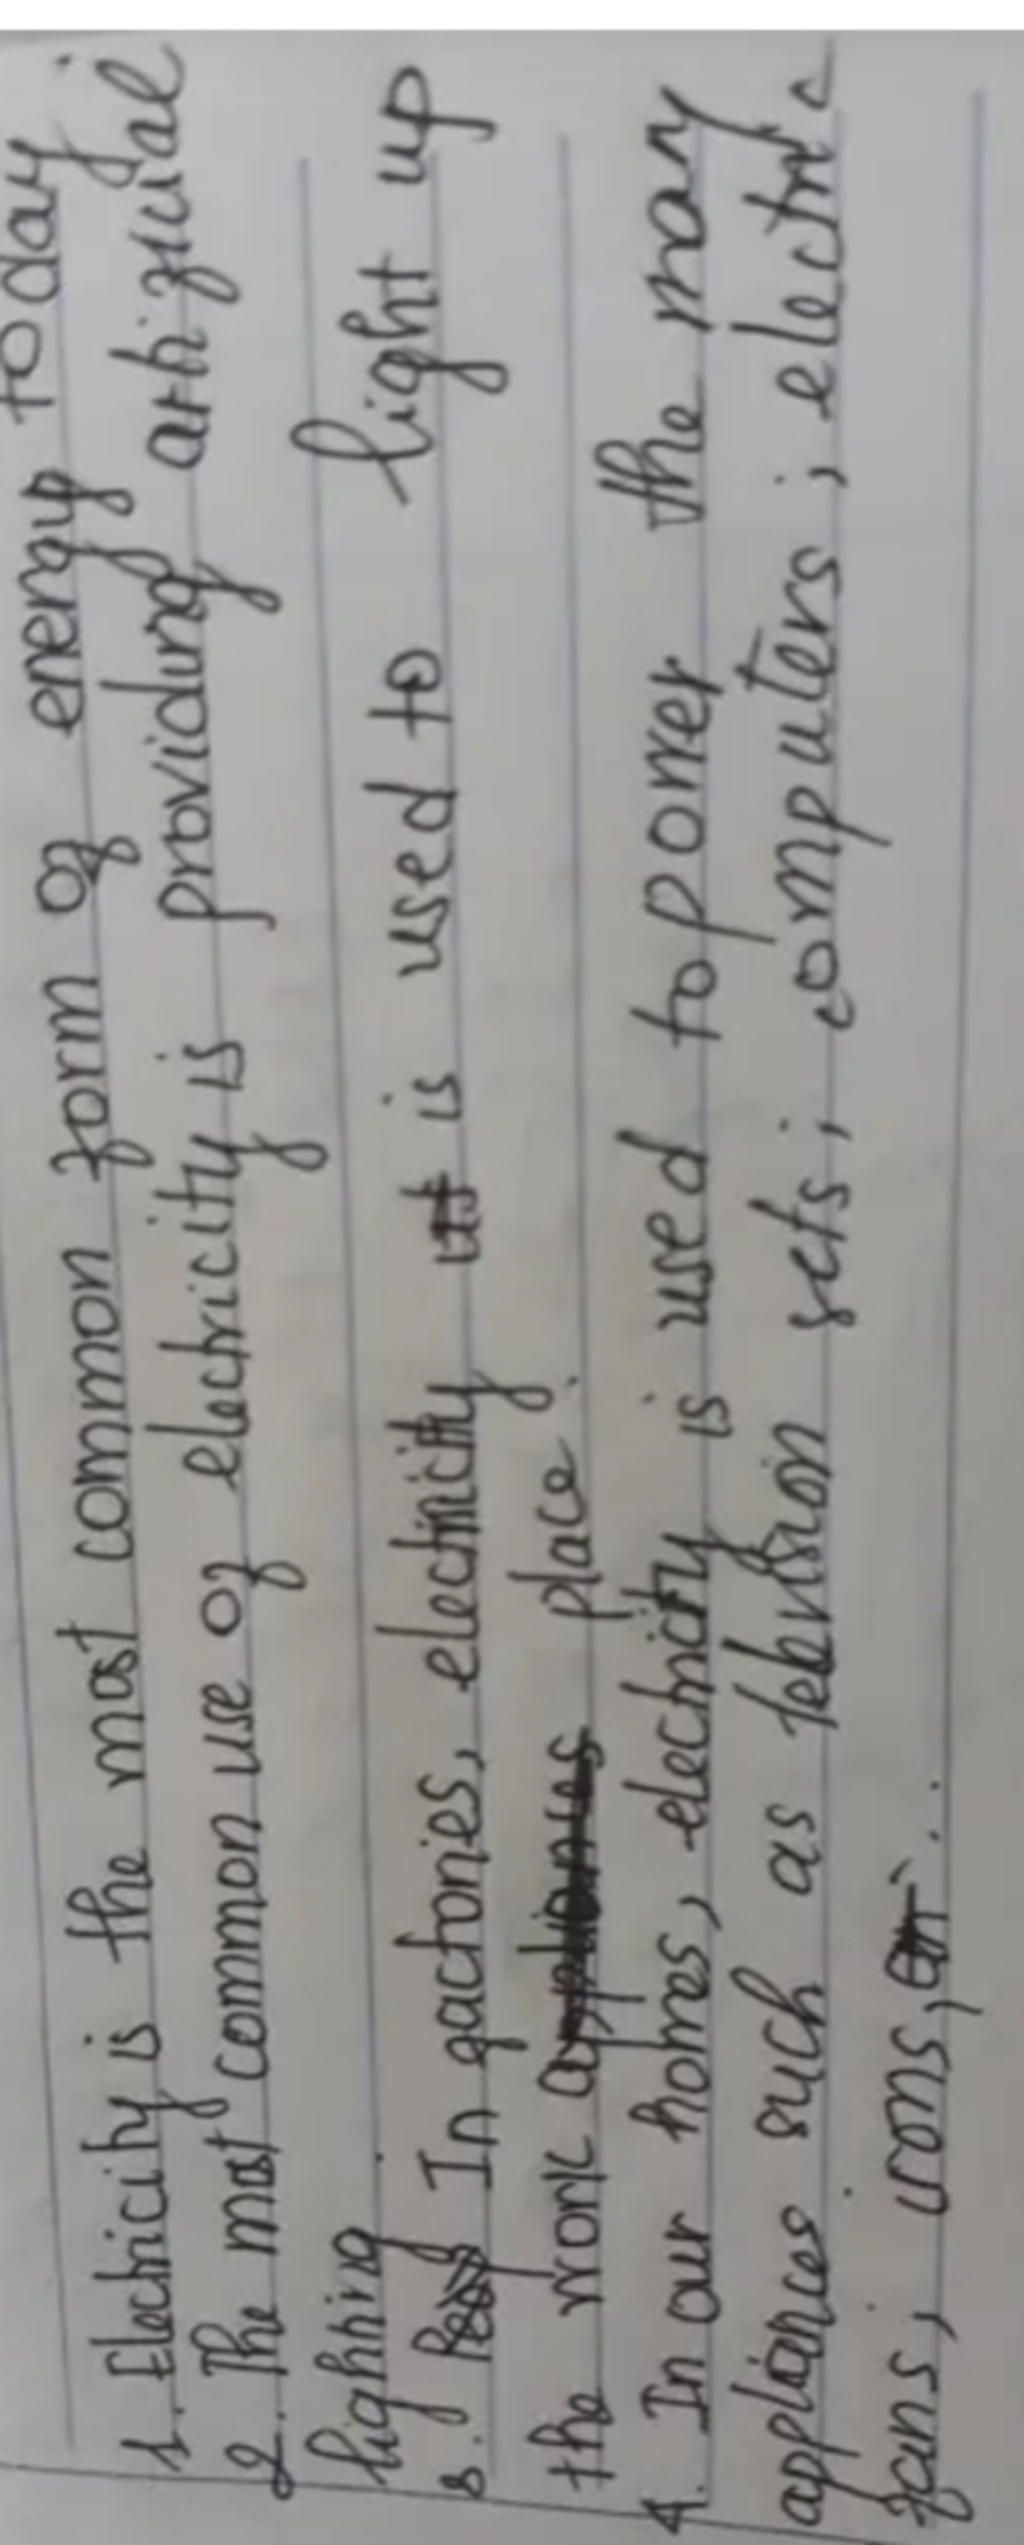 1. Electricity is the most common form of energy today.
2. The most common use of electricity is providing artificial
lighting.
3. In factories, electricity is used to light up
the work place.
4. In our homes, electricity is used to power the many
appliances such as televsion sets; computers; electric
fans; irons,